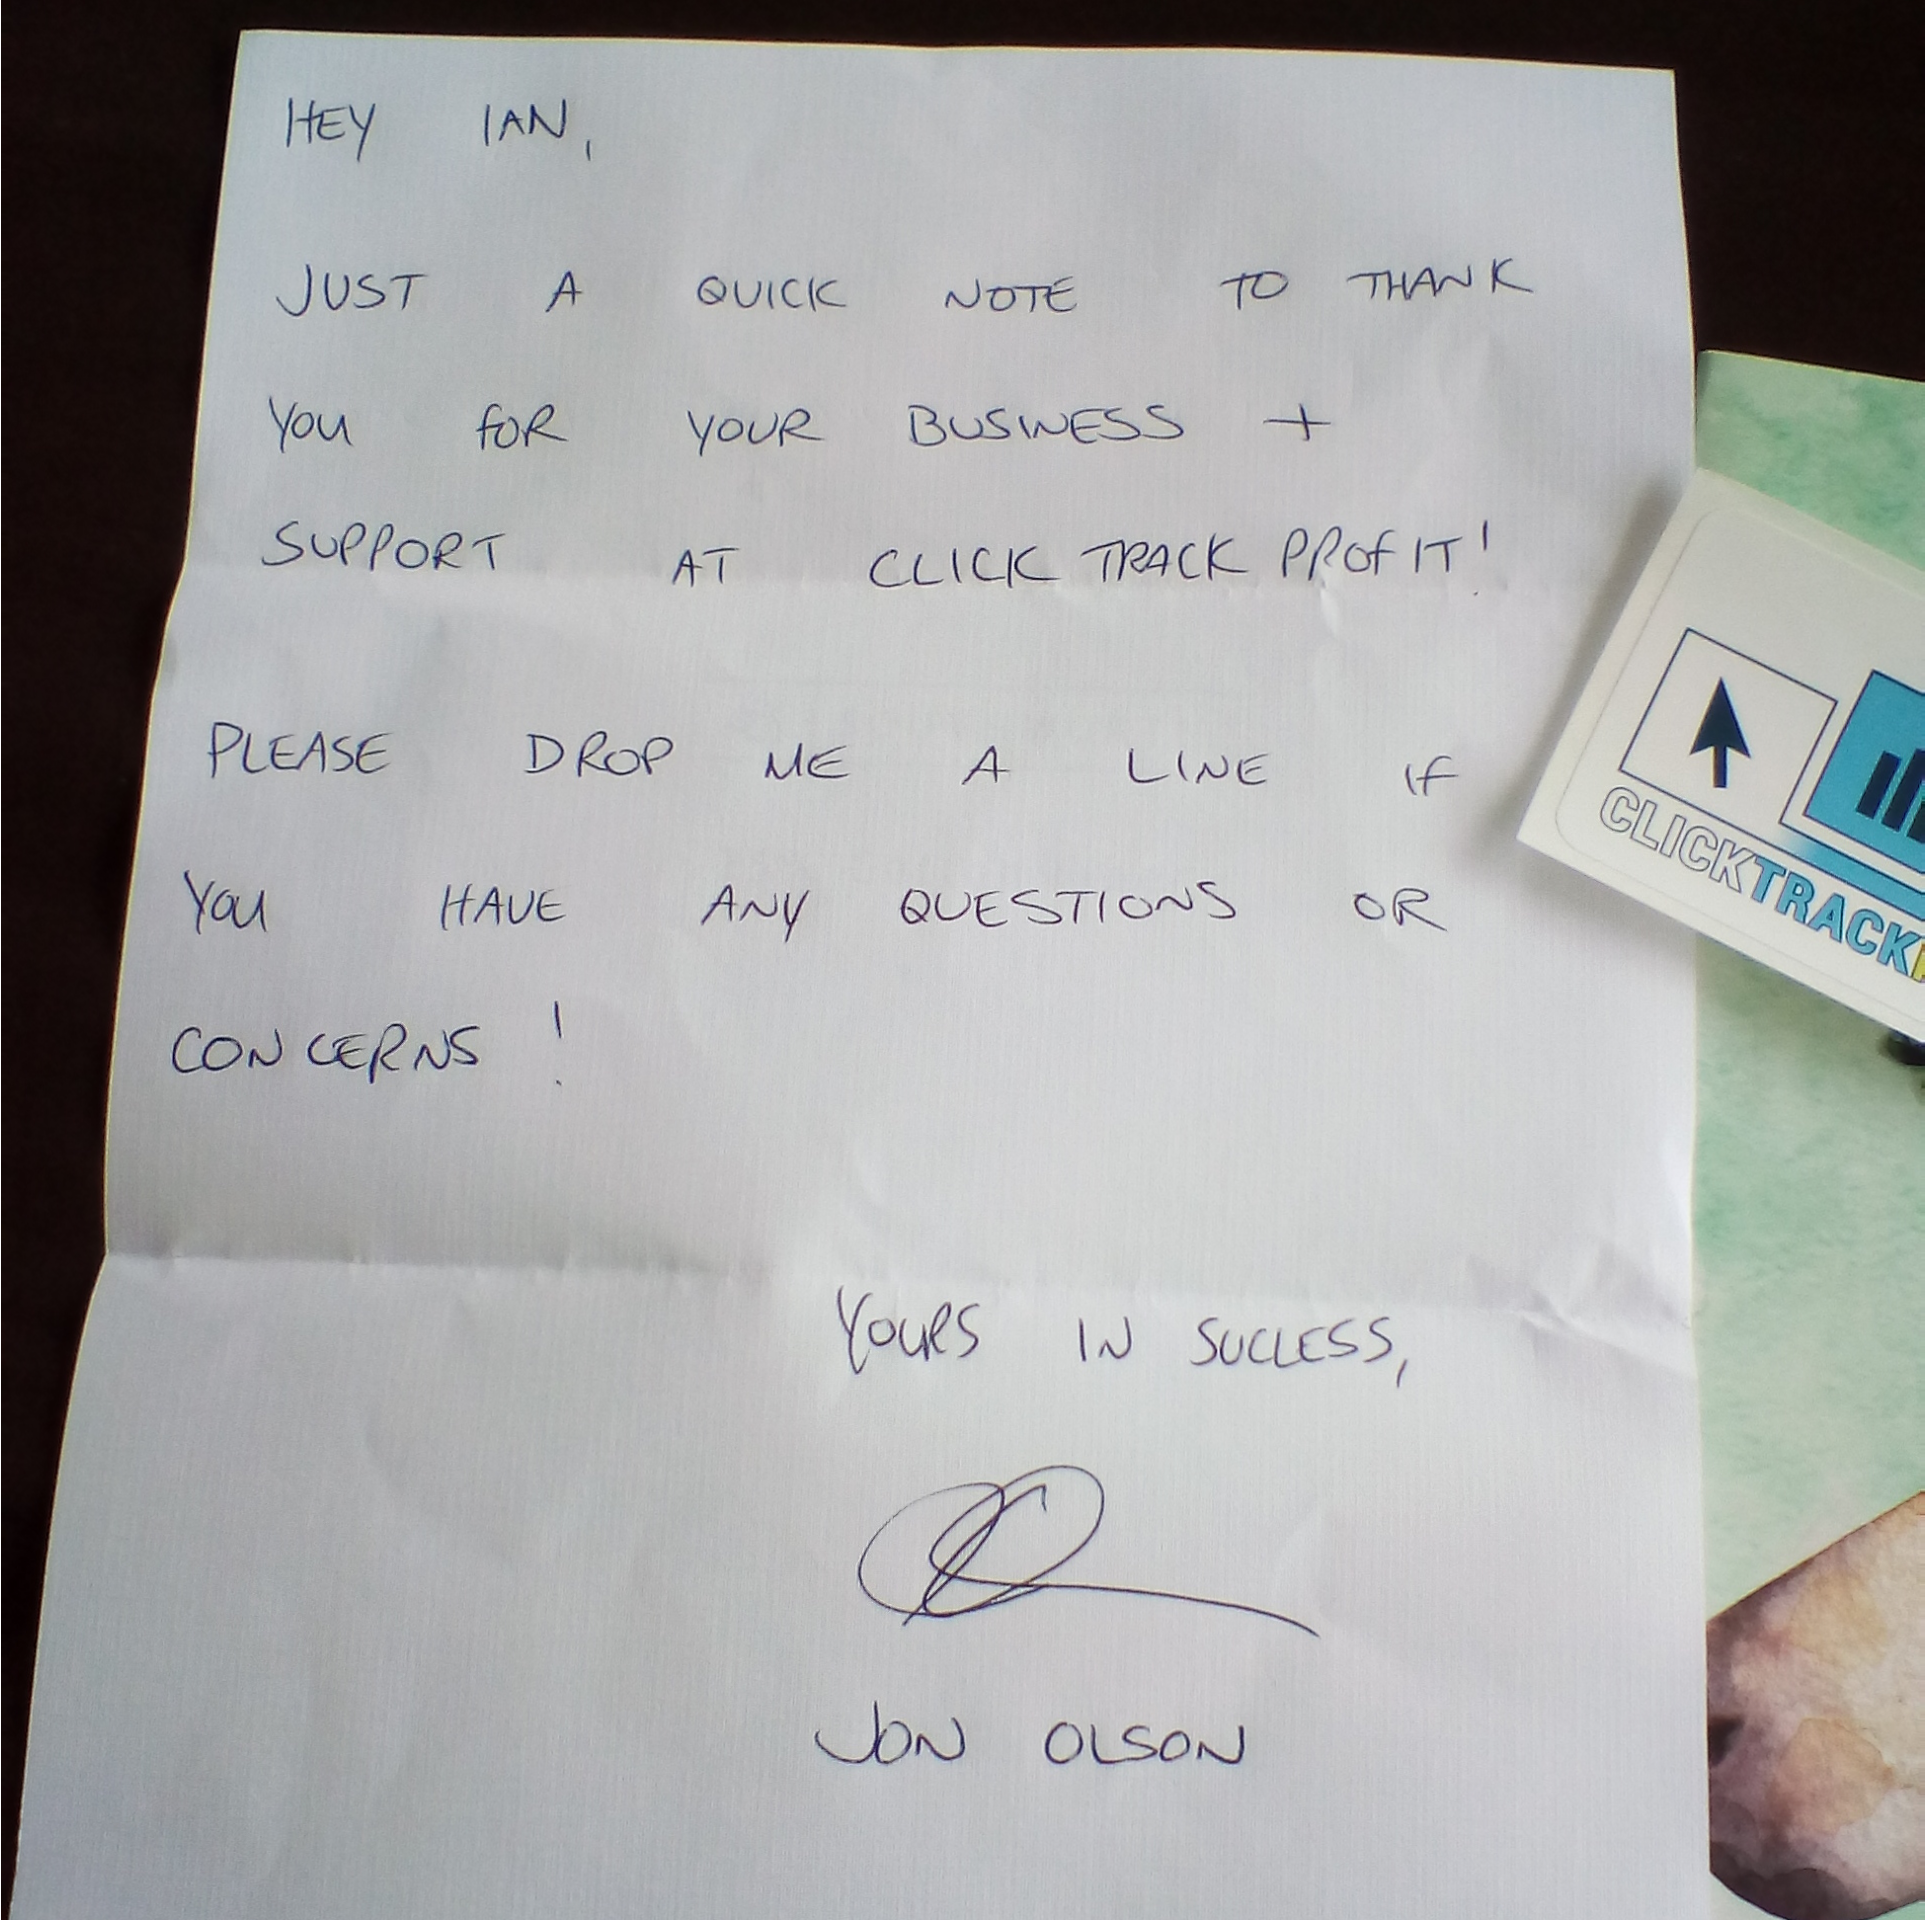 HEY IAN,
JUST A QUICK NOTE TO THANK
YOU FOR YOUR BUSINESS +
SUPPORT AT CLICK TRACK PROFIT!
PLEASE DROP ME A LINE IF
YOU HAVE ANY QUESTIONS OR
CONCERNS!
YOURS IN SUCCESS,
JON OLSON
CLICKTRACK